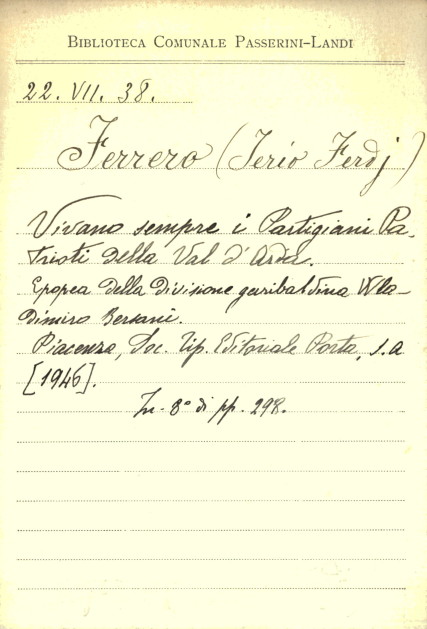 BIBLIOTECA COMUNALE PASSERINI-LANDI
22. VII. 38.
Ferrero (Terio Ferdj)
Vivano sempre i Partigiani Pa-
trioti della Val d'Arda.
Epopea della Divisione garibaldina Wla-
dimiro Bersani.
Piacenza, Soc. Tip. Editoriale Porta, s.a
[1946].
In-8° di pp. 298.